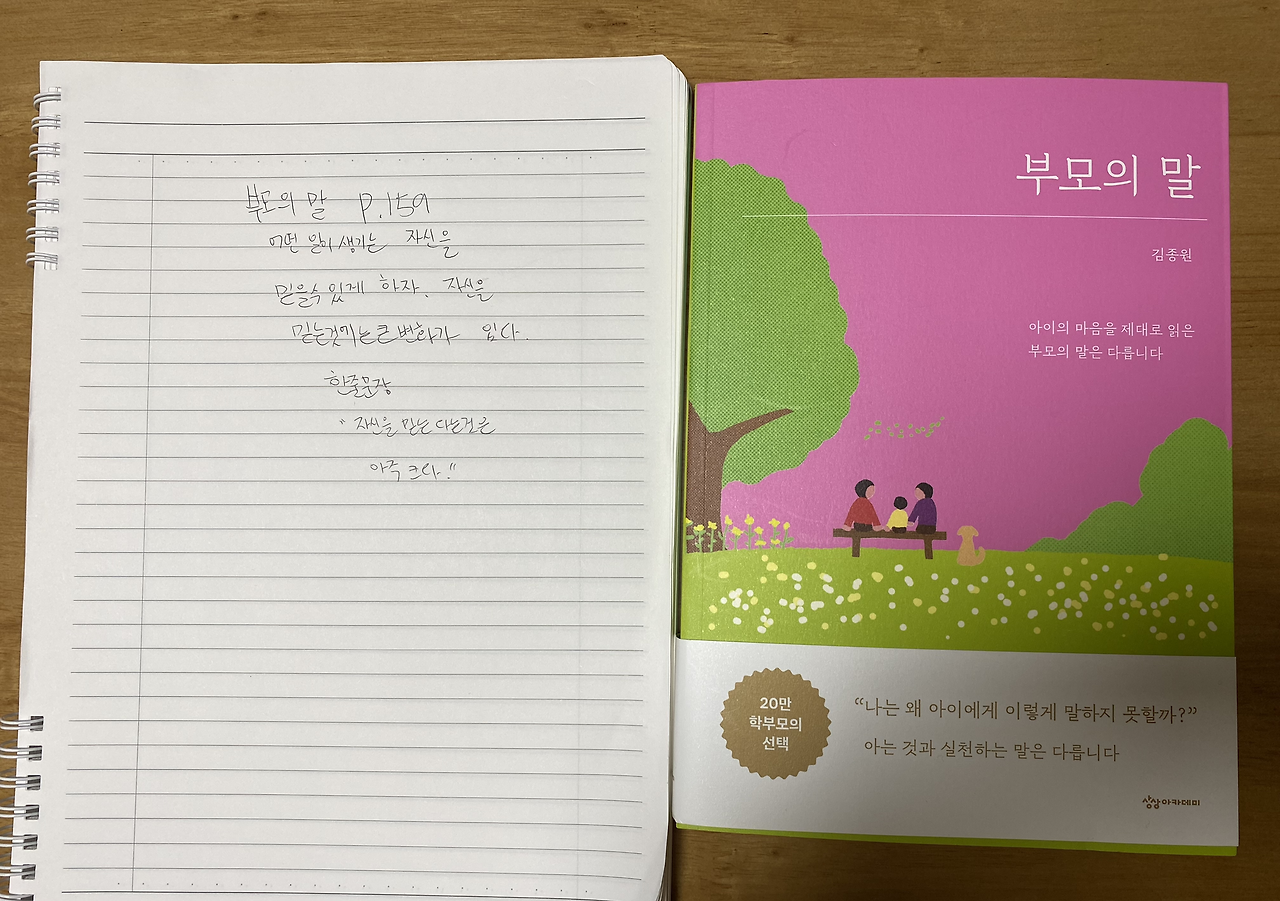 부모의 말 p.159
어떤 일이 생기는 자신을
믿을수 있게 하자. 자신을
믿는것이는큰변화가 있다.
한줄문장
" 자신을 믿는 다는것은
아주 크다."
부모의 말
김종원
아이의 마음을 제대로 읽은
부모의 말은 다릅니다
20만
학부모의
선택
“나는 왜 아이에게 이렇게 말하지 못할까?”
아는 것과 실천하는 말은 다릅니다
상상아카데미